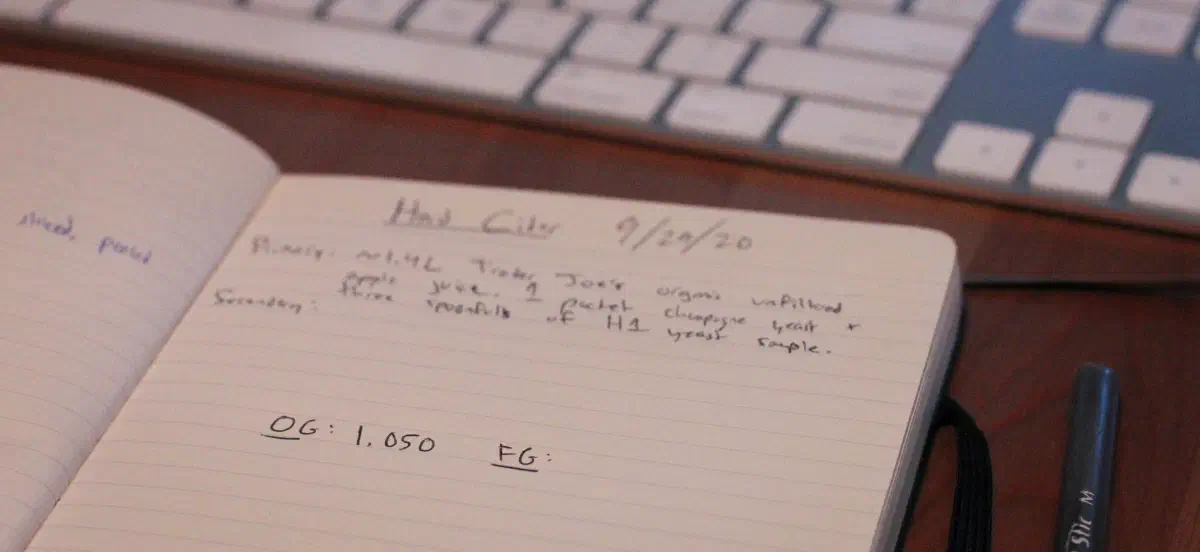 sliced, peeled
Hard Cider 9/29/20
Primary: Trader Joe's organic unfiltered
apple juice. 1 packet champagne yeast +
three spoonfuls of H1 yeast sample.
Secondary:
OG: 1.050 FG:
Stic M